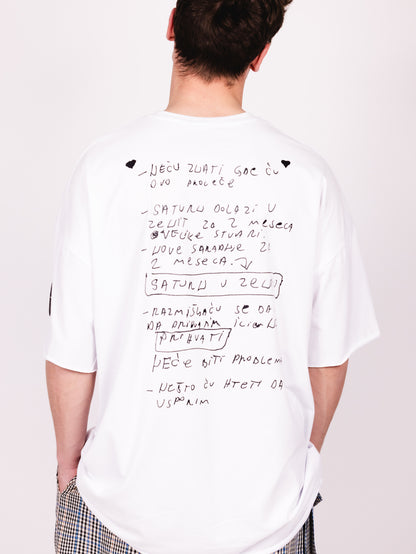 - NEĆU ZNATI GDE ĆU
OVO PROLEĆE
- SATURN DOLAZI U
ZENIT ZA 2 MESECA
VELIKE STVARI.
- NOVE SARADNJE ZA
2 MESECA.
SATURN U ZENIT
- RAZMIŠLJAĆU SE DA
DA PRIHVATIM
PRIHVATI
NEĆE BITI PROBLEM
- NEŠTO ĆU HTETI DA
USPORIM